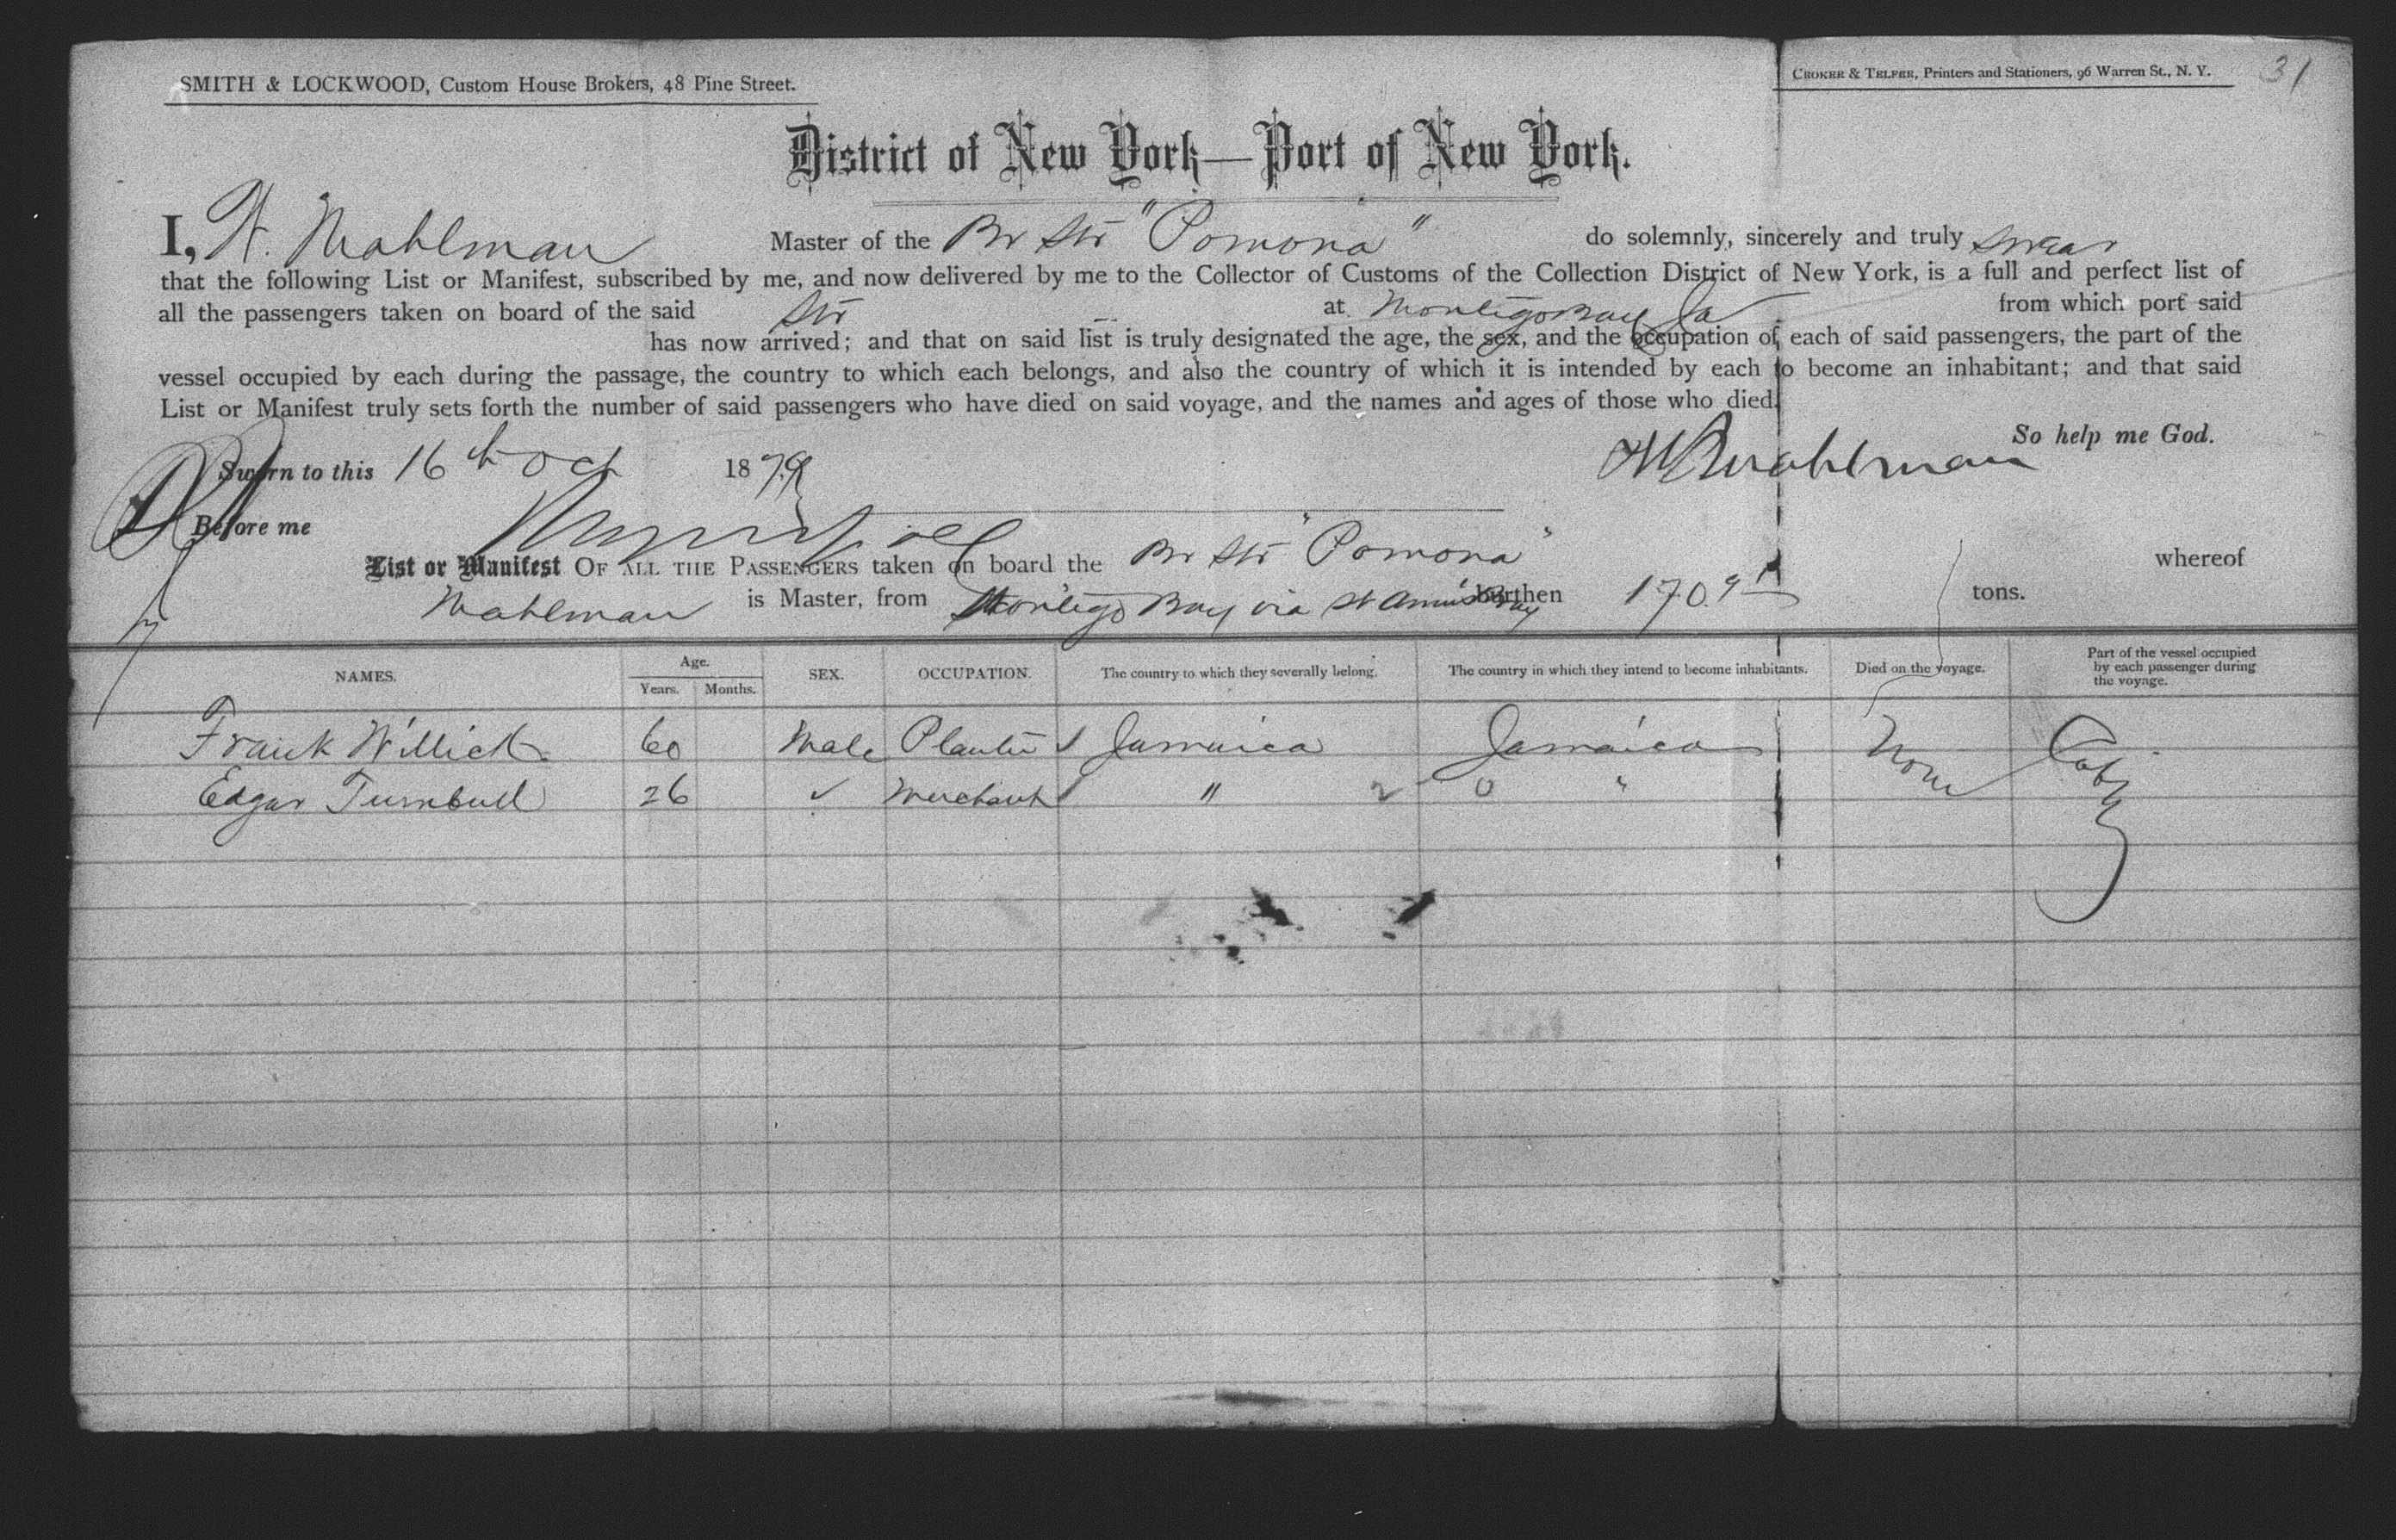 SMITH & LOCKWOOD, Custom House Brokers, 48 Pine Street.
CROKER & TELFER, Printers and Stationers, 96 Warren St., N. Y.
31
District of New York—Port of New York.
I, H. Mahlman Master of the Br Str "Pomona" do solemnly, sincerely and truly swear
that the following List or Manifest, subscribed by me, and now delivered by me to the Collector of Customs of the Collection District of New York, is a full and perfect list of
all the passengers taken on board of the said Str at Montego Bay Ja from which port said
has now arrived; and that on said list is truly designated the age, the sex, and the occupation of each of said passengers, the part of the
vessel occupied by each during the passage, the country to which each belongs, and also the country of which it is intended by each to become an inhabitant; and that said
List or Manifest truly sets forth the number of said passengers who have died on said voyage, and the names and ages of those who died.
So help me God.
Sworn to this 16th Oct 1879 Mahlman
Before me
List or Manifest OF ALL THE PASSENGERS taken on board the Br Str "Pomona" whereof
Mahlman is Master, from Montego Bay via St Anns Bay burthen 170 tons.
NAMES. Age. Years. Months. SEX. OCCUPATION. The country to which they severally belong. The country in which they intend to become inhabitants. Died on the voyage. Part of the vessel occupied by each passenger during the voyage.
Frank Willick 60 Male Planter Jamaica Jamaica None Cabin
Edgar Turnbull 26 ✓ Merchant " 2 0 "